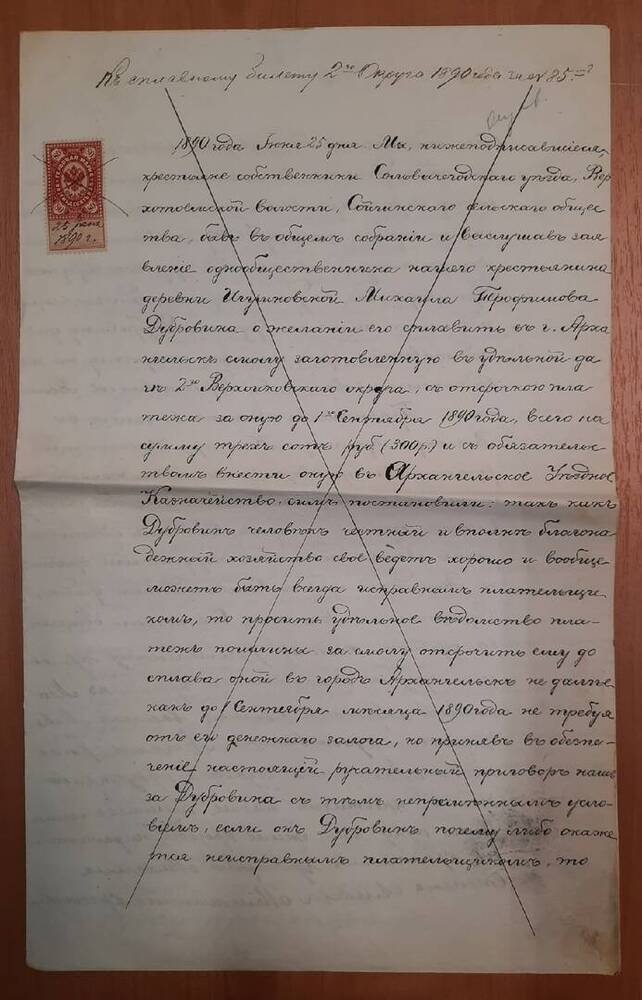 Къ сплавному билету 2го Округа 1890 года за № 85.
1890 года Іюня 25 дня Мы, нижеподписавшіеся,
крестьяне собственники Сольвычегодскаго уѣзда, Вер
хотоемской волости, Сойгинскаго сельскаго общес
тва, бывъ въ общемъ собраніи и выслушавъ зая
вленіе однообщественника нашего крестьянина
деревни Игумновской Михаила Трофимова
Дубровина о желаніи его сплавить въ г. Арха
нгельскъ смолу заготовленную въ удѣльной да
чѣ 2го округа, съ отсрочкою пла
тежа за оную до 1го Сентября 1890 года, всего на
сумму трехъ сотъ руб (300 р.) и съ обязательс
твомъ внести оную въ Архангельское Уѣздное
Казначейство, симъ постановили: такъ какъ
Дубровинъ человѣкъ честный и вполнѣ благона
дежный хозяйство своё ведетъ хорошо и вообще
можетъ быть всегда исправнымъ плательщи
комъ, то просить удѣльное вѣдомство пла-
тежъ пошлины за смолу отсрочить ему до
сплава оной въ городъ Архангельскъ не далѣе
какъ до 1 Сентября мѣсяца 1890 года не требуя
отъ его денежнаго залога, но принявъ въ обезпе-
ченіе настоящій ручательный приговоръ нашъ
за Дубровина съ тѣмъ непремѣннымъ усло-
віемъ, если онъ Дубровинъ почему либо окаже
тся неисправнымъ плательщикомъ, то
25 іюня
1890 г.